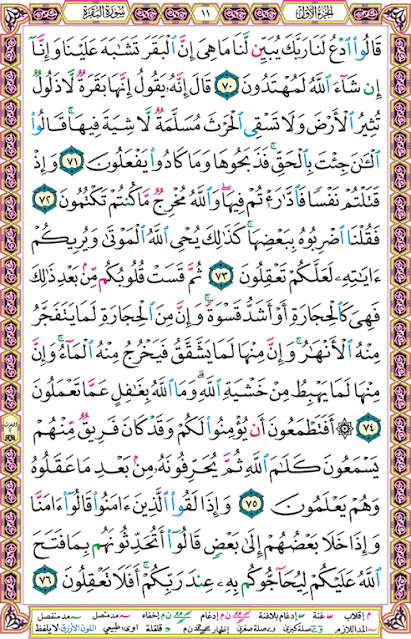 الجزء الأول
١١
سورة البقرة
قَالُوا۟ ٱدْعُ لَنَا رَبَّكَ يُبَيِّن لَّنَا مَا هِىَ إِنَّ ٱلْبَقَرَ تَشَٰبَهَ عَلَيْنَا وَإِنَّآ
إِن شَآءَ ٱللَّهُ لَمُهْتَدُونَ ٧٠ قَالَ إِنَّهُۥ يَقُولُ إِنَّهَا بَقَرَةٌ لَّا ذَلُولٌ
تُثِيرُ ٱلْأَرْضَ وَلَا تَسْقِى ٱلْحَرْثَ مُسَلَّمَةٌ لَّا شِيَةَ فِيهَا ۚ قَالُوا۟
ٱلْـَٰٔنَ جِئْتَ بِٱلْحَقِّ ۚ فَذَبَحُوهَا وَمَا كَادُوا۟ يَفْعَلُونَ ٧١ وَإِذْ
قَتَلْتُمْ نَفْسًا فَٱدَّٰرَْٰٔتُمْ فِيهَا ۖ وَٱللَّهُ مُخْرِجٌ مَّا كُنتُمْ تَكْتُمُونَ ٧٢
فَقُلْنَا ٱضْرِبُوهُ بِبَعْضِهَا ۚ كَذَٰلِكَ يُحْىِ ٱللَّهُ ٱلْمَوْتَىٰ وَيُرِيكُمْ
ءَايَٰتِهِۦ لَعَلَّكُمْ تَعْقِلُونَ ٧٣ ثُمَّ قَسَتْ قُلُوبُكُم مِّنۢ بَعْدِ ذَٰلِكَ
فَهِىَ كَٱلْحِجَارَةِ أَوْ أَشَدُّ قَسْوَةً ۚ وَإِنَّ مِنَ ٱلْحِجَارَةِ لَمَا يَتَفَجَّرُ
مِنْهُ ٱلْأَنْهَٰرُ ۚ وَإِنَّ مِنْهَا لَمَا يَشَّقَّقُ فَيَخْرُجُ مِنْهُ ٱلْمَآءُ ۚ وَإِنَّ
مِنْهَا لَمَا يَهْبِطُ مِنْ خَشْيَةِ ٱللَّهِ ۗ وَمَا ٱللَّهُ بِغَٰفِلٍ عَمَّا تَعْمَلُونَ
٧٤ ۞ أَفَتَطْمَعُونَ أَن يُؤْمِنُوا۟ لَكُمْ وَقَدْ كَانَ فَرِيقٌ مِّنْهُمْ
يَسْمَعُونَ كَلَٰمَ ٱللَّهِ ثُمَّ يُحَرِّفُونَهُۥ مِنۢ بَعْدِ مَا عَقَلُوهُ
وَهُمْ يَعْلَمُونَ ٧٥ وَإِذَا لَقُوا۟ ٱلَّذِينَ ءَامَنُوا۟ قَالُوٓا۟ ءَامَنَّا
وَإِذَا خَلَا بَعْضُهُمْ إِلَىٰ بَعْضٍ قَالُوٓا۟ أَتُحَدِّثُونَهُم بِمَا فَتَحَ
ٱللَّهُ عَلَيْكُمْ لِيُحَآجُّوكُم بِهِۦ عِندَ رَبِّكُمْ ۚ أَفَلَا تَعْقِلُونَ ٧٦
م إقلاب س غنة إدغام بلاغنة ن م إدغام ن م إخفاء مد متصل مد منفصل
المد اللازم صلة كبرى وصلة صغرى إظهار قلقلة اوى: طبيعي اللون الأزرق: لا يلفظ